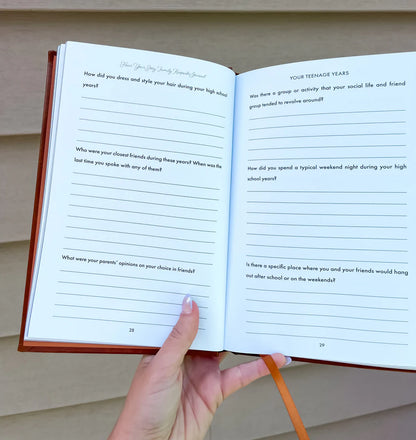 Share Your Story Family Keepsake Journal
How did you dress and style your hair during your high school
years?
Who were your closest friends during these years? When was the
last time you spoke with any of them?
What were your parents' opinions on your choice in friends?
28
YOUR TEENAGE YEARS
Was there a group or activity that your social life and friend
group tended to revolve around?
How did you spend a typical weekend night during your high
school years?
Is there a specific place where you and your friends would hang
out after school or on the weekends?
29